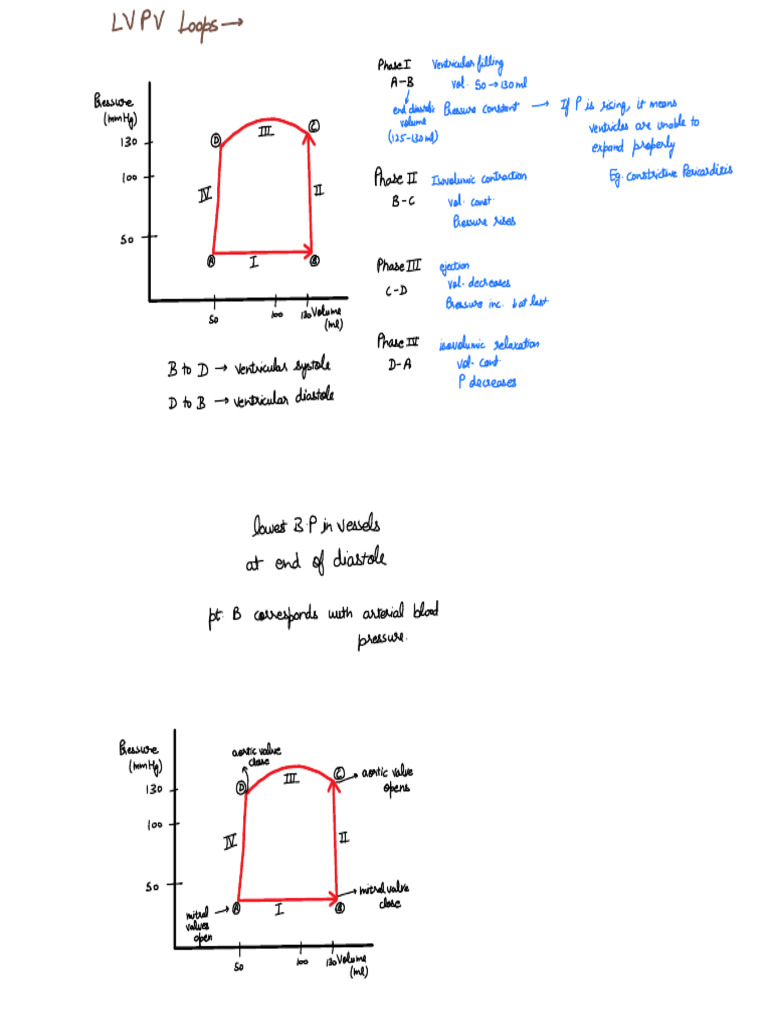 LVPV Loops→
Pressure
(mmHg)
130
100
50
D
III
C
IV
II
A
I
B
50
100
130 Volume
(ml)
B to D → ventricular systole
D to B → ventricular diastole
Phase I Ventricular filling
A-B vol. 50→130ml
end diastolic volume (125-130ml)
Pressure constant → If P is rising, it means
ventricles are unable to
expand properly
Eg. Constrictive Pericarditis
Phase II Isovolumic contraction
B-C vol. const.
Pressure rises
Phase III ejection
C-D vol. decreases
Pressure inc. b at last
Phase IV isovolumic relaxation
D-A vol. cont
P decreases
lowest B.P in vessels
at end of diastole
pt. B corresponds with arterial blood
pressure.
Pressure
(mmHg)
130
100
50
aortic valve
close
D
III
C
→ aortic valve
opens
IV
II
→ mitral valve
close
mitral →
valves
open
A
I
B
50
100
130 Volume
(ml)